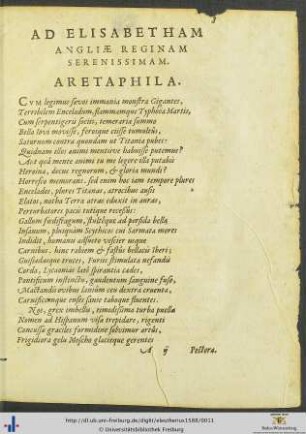 AD ELISABETHAM
ANGLIÆ REGINAM
SERENISSIMAM.
ARETAPHILA.
CVM legimus sævos immania monstra Gigantes,
Terribilem Enceladum, flammamque Typhœa Martis,
Cum serpentigeris sociis, temeraria summo
Bella Iovi movisse, ferosque ciisse tumultus,
Saturnum contra quondam ut Titania pubes:
Quidnam illis animi mentisve habuisse putemus?
Ast quâ mente animi tu me legere illa putabis
Heroina, decus regnorum, & gloria mundi?
Harresia memorans. sed enim hoc tam tempore plures
Encelados, plores Titanas, atrocibus ausis
Elatos, nostra Terra atrae eduxit in auras,
Perturbatores pacis tutique recessus:
Gallum fœdifragum, stultéque ad persida bella
Insanum, plusquam Scythicus cui Sarmata mores
Indidit, humano adsueto vescier usque
Carnibus. hinc raleem & fastus bellacis Iberi;
Guisiadasque truces, Furiis stimulata nefandis
Corda, Lycaonias latè spirantia cades,
Pontificum instinctu, gaudentum sanguine fuso,
Mactandis ovibus Ianium ceu dextra cruento,
Carnificumque enses sanie taboque fluentes.
Nos, grex imbellis, timidissima turba puellæ
Nomen ad Hispanum visa trepidare, rigenti
Concussa graciles formidine subsimus artus,
Frigidiora gelu Moscho glacieque gerentes
A ij Pectora.
http://dl.ub.uni-freiburg.de/diglit/eleutherus1588/0011
© Universitätsbibliothek Freiburg
Baden-Württemberg